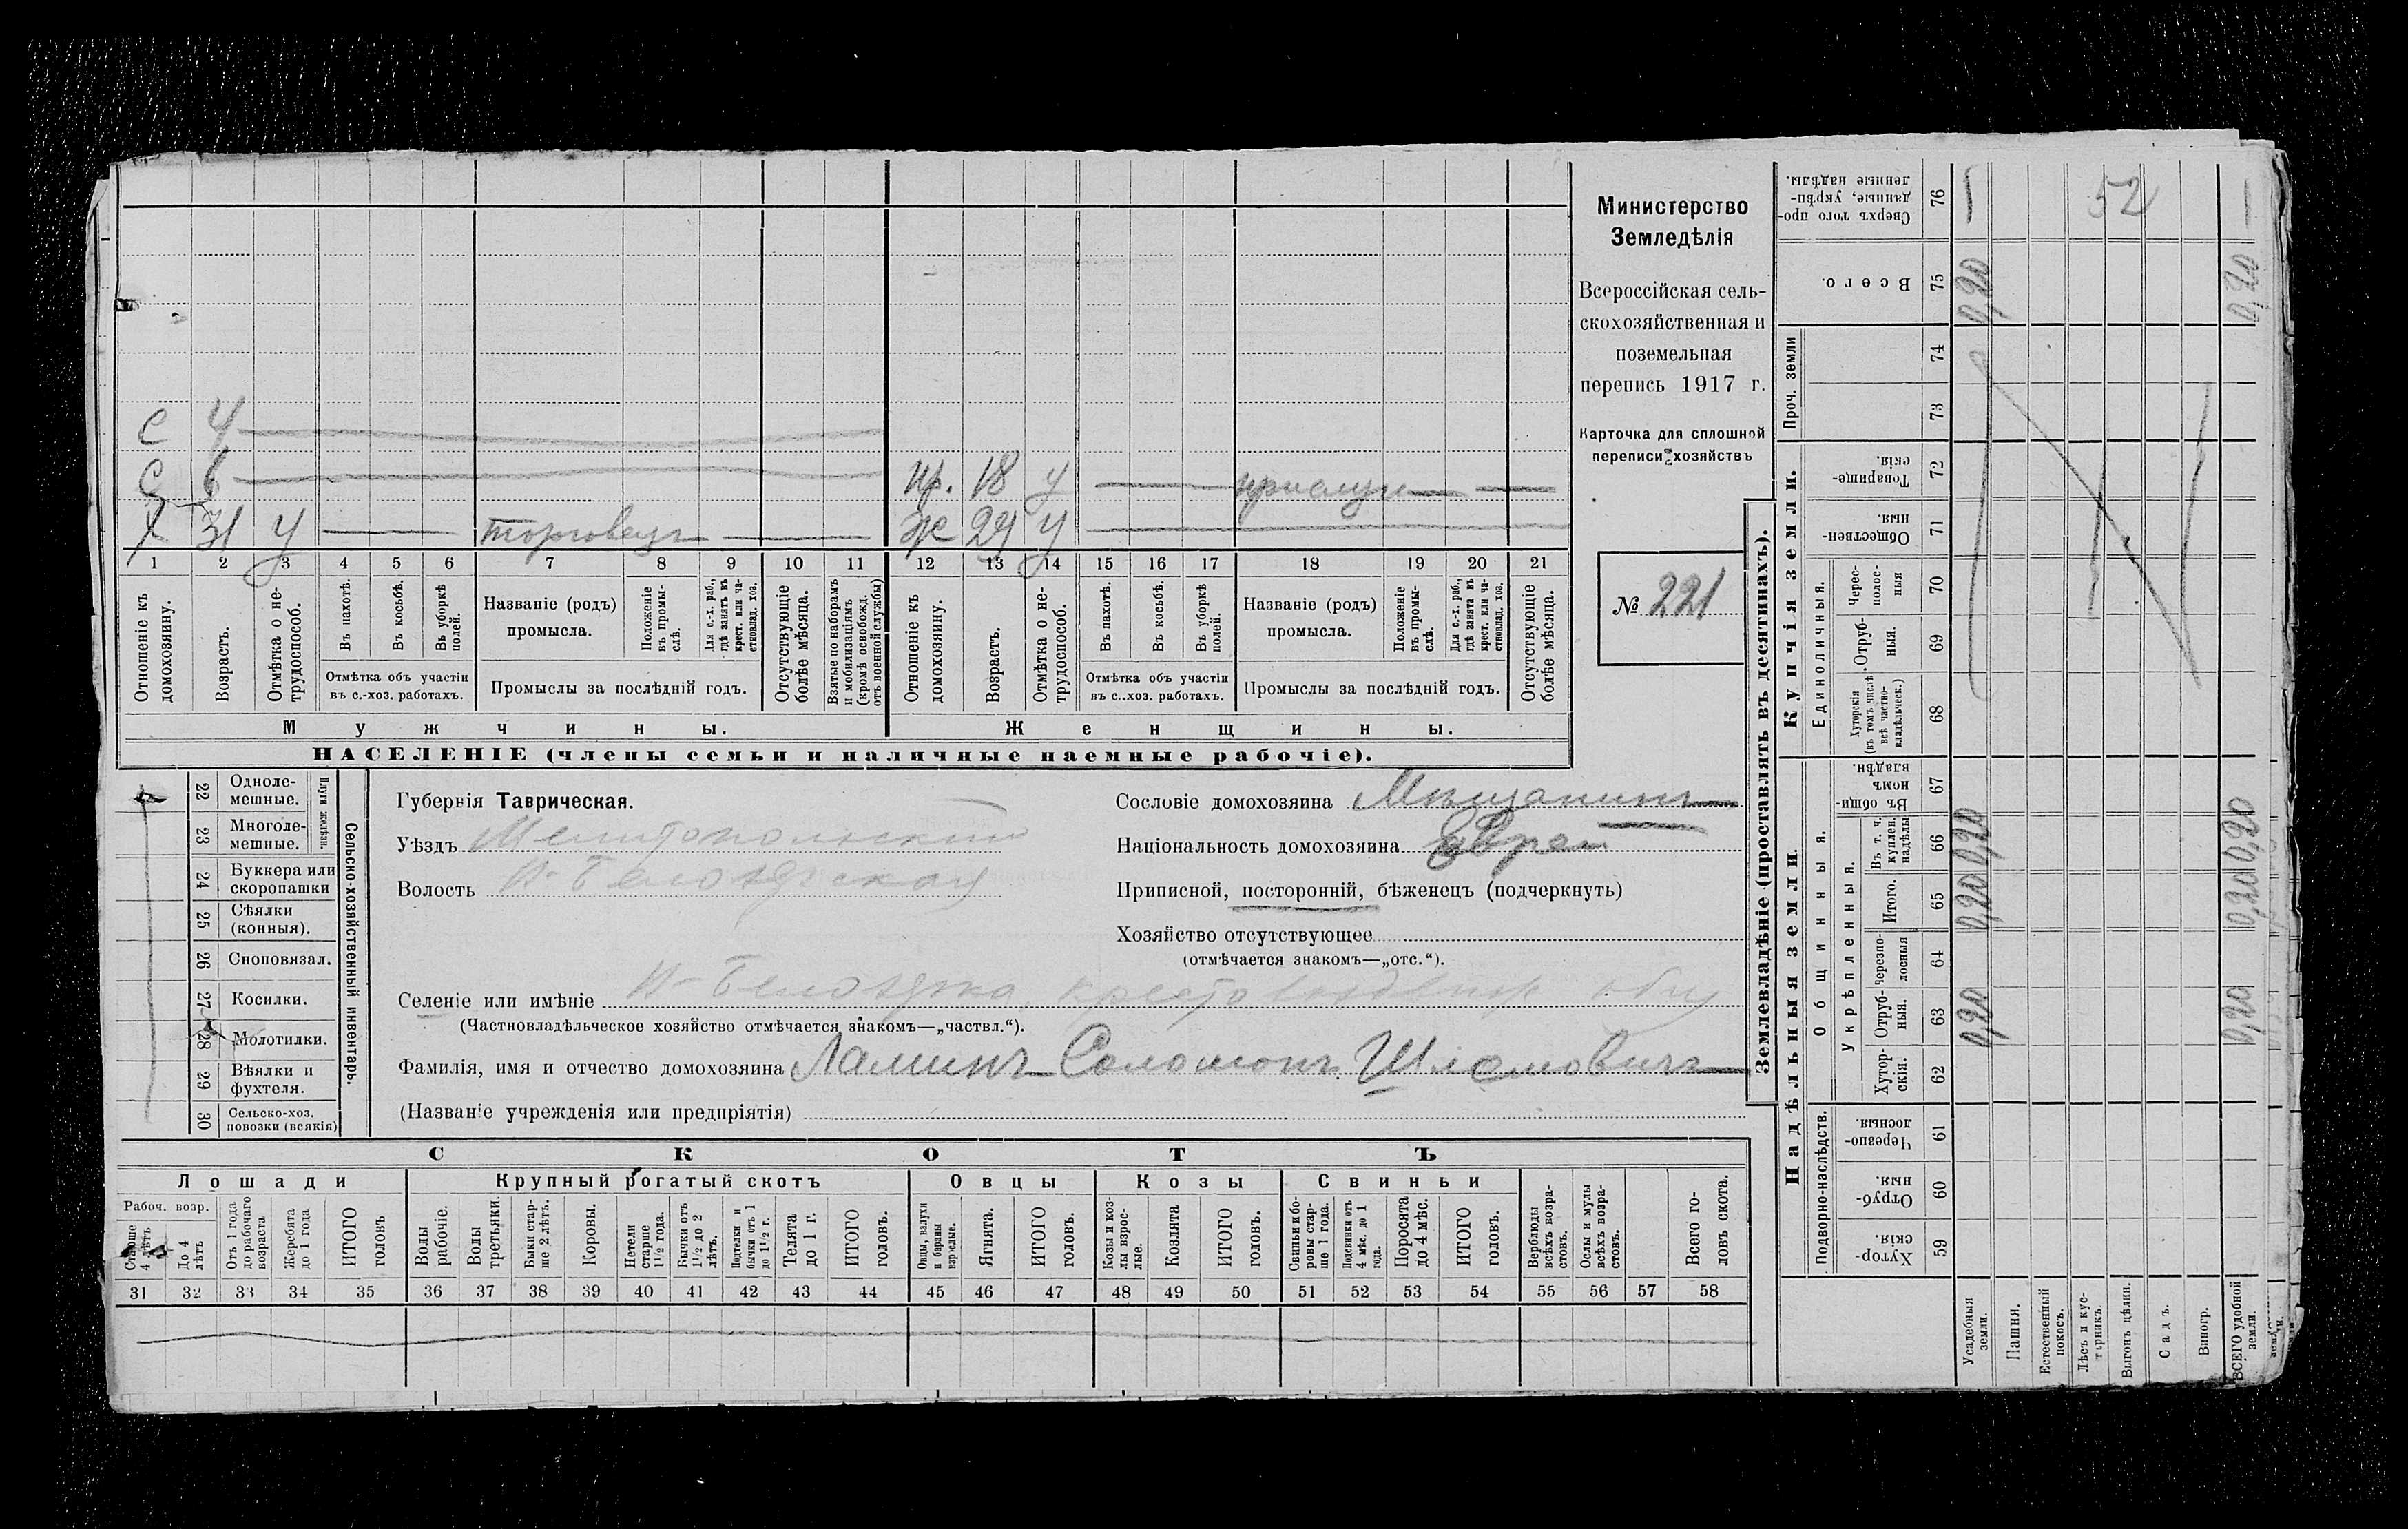 С 4
С 6
Х 31 у торговецъ
пр. 18 у прислуга
Ж 24 у
1 2 3 4 5 6 7 8 9 10 11 12 13 14 15 16 17 18 19 20 21
Отношеніе къ домохозяину.
Возрастъ.
Отмѣтка о не-
трудоспособ.
Въ пахотѣ.
Въ косьбѣ.
Въ уборкѣ полей.
Отмѣтка объ участіи
въ с.-хоз. работахъ.
Названіе (родъ)
промысла.
Положеніе
въ промы-
слѣ.
Для с.-х. раб.,
гдѣ занятъ въ
крест. или ча-
стновлад. хоз.
Промыслы за послѣдній годъ.
Отсутствующіе
болѣе мѣсяца.
Взятые по наборамъ
и мобилизаціямъ
(кромѣ освобожд.
отъ военной службы)
Отношеніе къ
домохозяину.
Возрастъ.
Отмѣтка о не-
трудоспособ.
Въ пахотѣ.
Въ косьбѣ.
Въ уборкѣ
полей.
Отмѣтка объ участіи
въ с.-хоз. работахъ.
Названіе (родъ)
промысла.
Положеніе
въ промы-
слѣ.
Для с.-х. раб.,
гдѣ занята въ
крест. или ча-
стновлад. хоз.
Промыслы за послѣдній годъ.
Отсутствующіе
болѣе мѣсяца.
Мужчины.
Женщины.
НАСЕЛЕНІЕ (члены семьи и наличные наемные рабочіе).
Министерство
Земледѣлія
Всероссійская сель-
скохозяйственная и
поземельная
перепись 1917 г.
Карточка для сплошной
переписи хозяйствъ
№ 221
22 Одноле-
мешные.
23 Многоле-
мешные.
Плуги желѣзн.
24 Буккера или
скоропашки
25 Сѣялки
(конныя).
26 Сноповязал.
27 Косилки.
28 Молотилки.
29 Вѣялки и
фухтеля.
30 Сельско-хоз.
повозки (всякія)
Сельско-хозяйственный инвентарь.
Губернія Таврическая.
Уѣздъ Мелитопольскій
Волость Н-Белозерская
Сословіе домохозяина Мѣщанинъ
Національность домохозяина еврей
Приписной, посторонній, бѣженецъ (подчеркнуть)
Хозяйство отсутствующее
(отмѣчается знакомъ—„отс.“).
Селеніе или имѣніе Н-Белозерка,
(Частновладѣльческое хозяйство отмѣчается знакомъ—„частвл.“).
Фамилія, имя и отчество домохозяина Ламинъ Соломонъ Шлемовичъ
(Названіе учрежденія или предпріятія)
СКОТЪ
Лошади
Крупный рогатый скотъ
Овцы
Козы
Свиньи
Рабоч. возр.
Старше
4 лѣтъ
До 4
лѣтъ
Отъ 1 года
до рабочаго
возраста
Жеребята
до 1 года
ИТОГО
головъ
Волы
рабочіе.
Волы
третьяки.
Быки стар-
ше 2 лѣтъ.
Коровы.
Нетели
старше
1 1/2 года.
Бычки отъ
1 1/2 до 2
лѣтъ.
Подтелки и
бычки отъ 1
до 1 1/2 г.
Телята
до 1 г.
ИТОГО
головъ.
Овцы, валухи
и бараны
взрослые.
Ягнята.
ИТОГО
головъ.
Козы и коз-
лы взрос-
лые.
Козлята
ИТОГО
головъ.
Свиньи и бо-
ровы стар-
ше 1 года.
Подсвинки отъ
4 мѣс. до 1
года.
Поросята
до 4 мѣс.
ИТОГО
головъ.
Верблюды
всѣхъ возра-
стовъ.
Ослы и мулы
всѣхъ возра-
стовъ.
Всего го-
ловъ скота.
31 32 33 34 35 36 37 38 39 40 41 42 43 44 45 46 47 48 49 50 51 52 53 54 55 56 57 58
Землевладѣніе (проставлять въ десятинахъ).
Купчія земли.
Надѣльныя земли
Сверхъ того про-
данные, укрѣп-
ленные надѣлы.
76
52
Всего.
75 0,20 0,20
Проч. земли
74
73
Товарище-
скія.
72
Обществен-
ныя.
71
Единоличныя.
Черес-
полос-
ныя
70
Отруб-
ныя.
69
Хуторскія
(въ томъ числѣ
всѣ частно-
владѣльческ.)
68
Общинныя.
Въ общин-
номъ
владѣн.
67
Укрѣпленныя.
Въ т. ч.
куплен.
надѣлы
66 0,20 0,20
Итого.
65 0,20 0,20
Черезпо-
лосныя
64
Отруб-
ныя.
63 0,20 0,20
Хутор-
скія.
62
Подворно-наслѣдств.
Черезпо-
лосныя.
61
Отруб-
ныя.
60
Хутор-
скія.
59
Усадебныя
земли.
Пашня.
Естественный
покосъ.
Лѣсъ и кус-
тарникъ.
Выгонъ цѣлин.
Садъ.
Виногр.
ВСЕГО удобной
земли.